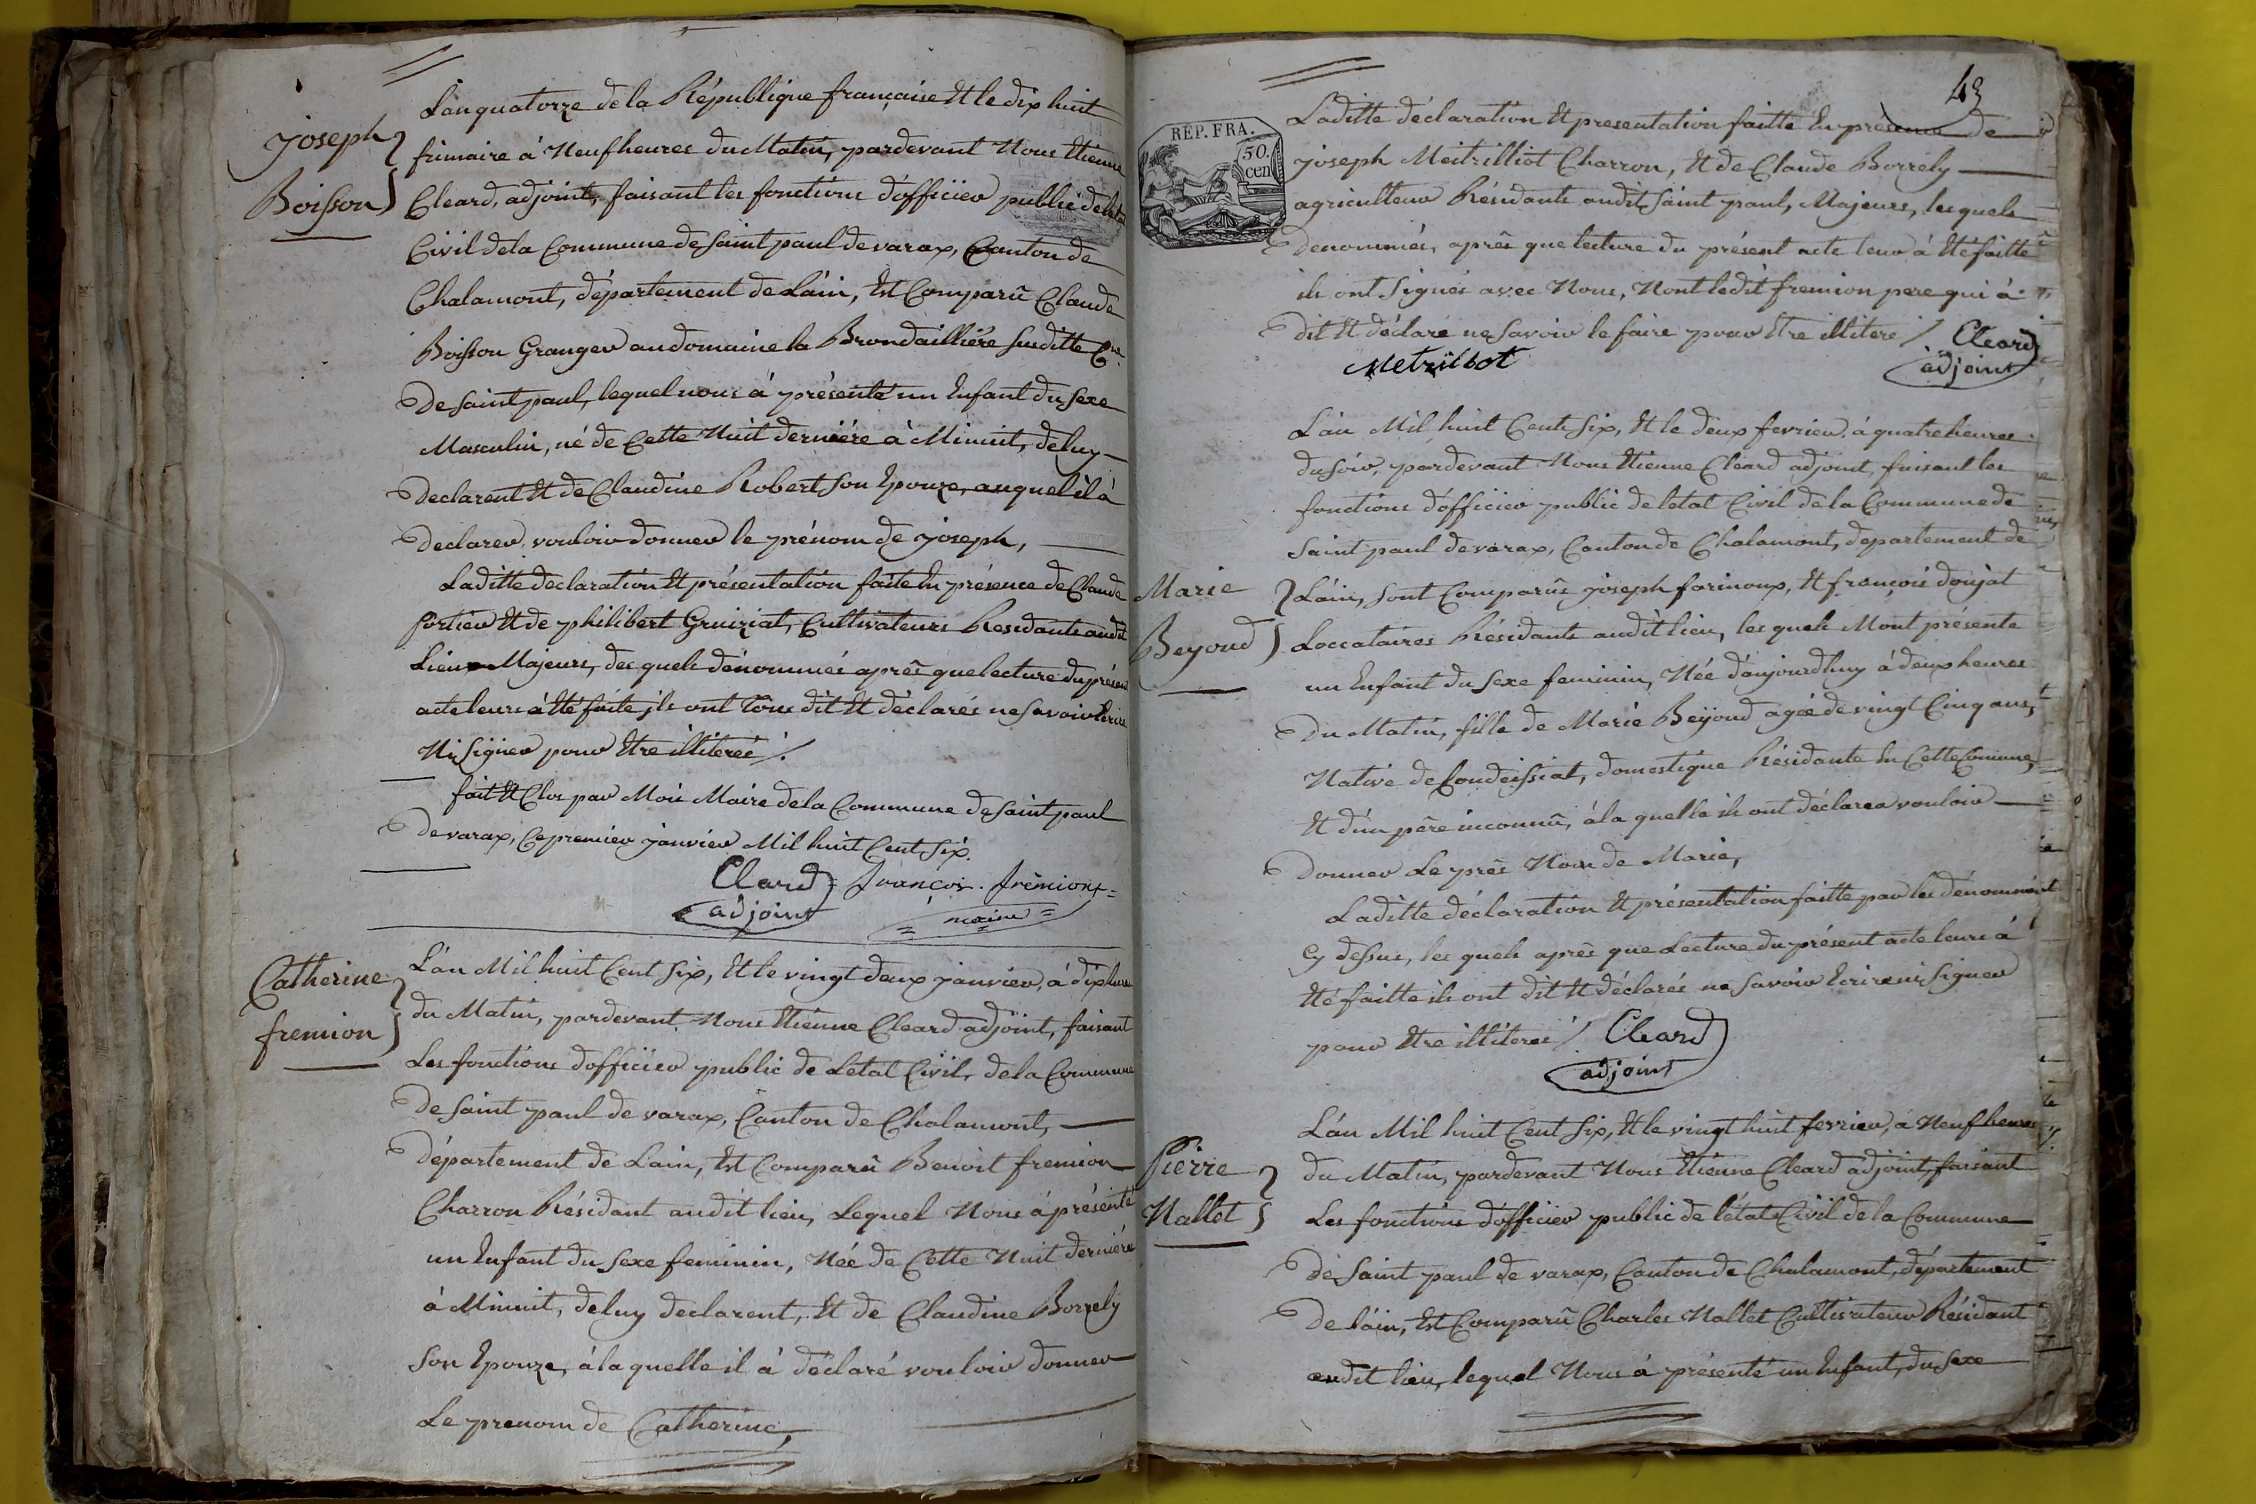 L'an quatorze de la République française Et le dix huit
joseph
frimaire à Neuf heures du Matin, pardevant Nous Etienne
Boisson
Cleard, adjoint, faisant les fonctions d'officier public de
Civil de la Commune de saint paul de varax, Canton de
Chalamont, département de L'ain, Est Comparû Claude
Boisson Granger au domaine la Brondaillière susditte Cne
De saint paul, lequel nous à présenté un Enfant du sexe
Masculin, né de Cette Nuit dernière à Minuit, de luy
Declarent Et de Claudine Robert son Epouze, auquel il à
Declarer vouloir donner le prénom de joseph,
Laditte declaration Et présentation faite En présence de Claude
fortier Et de philibert Gruiziat, Cultivateurs Residants audit
Lieu Majeurs, des quels dénommés après que lecture du présent
acte leurs à été faite, ils ont tous dit Et déclarés ne savoir Ecrire
Ni signer pour Etre illiterés /.
fait Et Clos par Moi Maire de la Commune de saint paul
De varax, Ce premier janvier Mil huit Cent Six.
Cleard françois fremion
adjoint maire
Catherine
L'an Mil huit Cent Six, Et le vingt deux janvier, à dix heures
fremion
du Matin, pardevant Nous Etienne Cleard adjoint, faisant
Les fonctions d'officier public de L'etat Civil, de la Commune
De saint paul de varax, Canton de Chalamont,
département de Lain, Est Comparû Benoit fremion
Charron Résidant audit lieu, Lequel Nous à présenté
un Enfant du sexe feminin, Née de Cette Nuit dernière
à Minuit, de luy declarent, Et de Claudine Borrely
son Epouze, à la quelle il à déclaré vouloir donner
Le prenom de Catherine,
43
RÉP. FRA.
50.
cen
Laditte déclaration Et presentation faitte En présence de
joseph Meitrilliot Charron, Et de Claude Borrely
agriculteur Résidants audit saint paul, Majeurs, les quels
denommés, après que lecture du présent acte leur à été faitte
ils ont signés avec Nous, Nont ledit fremion pere qui à
dit Et déclaré ne savoir le faire pour Etre illiteré / Cleard
Metrillot adjoint
L'an Mil huit Cent Six, Et le deux fevrier, à quatre heures
du soir, pardevant Nous Etienne Cleard adjoint, faisant les
fonctions d'officier public de l'etat Civil de la Commune de
saint paul de varax, Canton de Chalamont, departement de
Marie
L'ain, sont Comparûs joseph farinoux, Et françois donjat
Beyoud
Loccataires Résidants audit lieu, les quels Mont présenté
un Enfant du sexe feminin, Née d'aujourdhuy à deux heures
Du Matin, fille de Marie Beyoud agée de vingt Cinq ans,
Native de Condeissiat, domestique Résidante En Cette Comune,
Et d'un père inconnû, à la quelle ils ont déclarer vouloir
Donner Le près Nom de Marie,
Laditte déclaration Et présentation faitte par les dénommés
Cy dessus, les quels après que Lecture du présent acte leurs à
Eté faitte ils ont dit Et déclarés ne savoir Ecrire ni signer
pour Etre illiterés / Cleard
adjoint
L'an Mil huit Cent Six, Et le vingt huit fevrier, à Neuf heures
Pierre
du Matin, pardevant Nous Etienne Cleard adjoint, faisant
Nallet
Les fonctions d'officier public de l'état Civil de la Commune
De saint paul de varax, Canton de Chalamont, département
De l'ain, Est Comparû Charles Nallet Cultivateur Résidant
audit lieu, lequel Nous à présenté un Enfant, du sexe